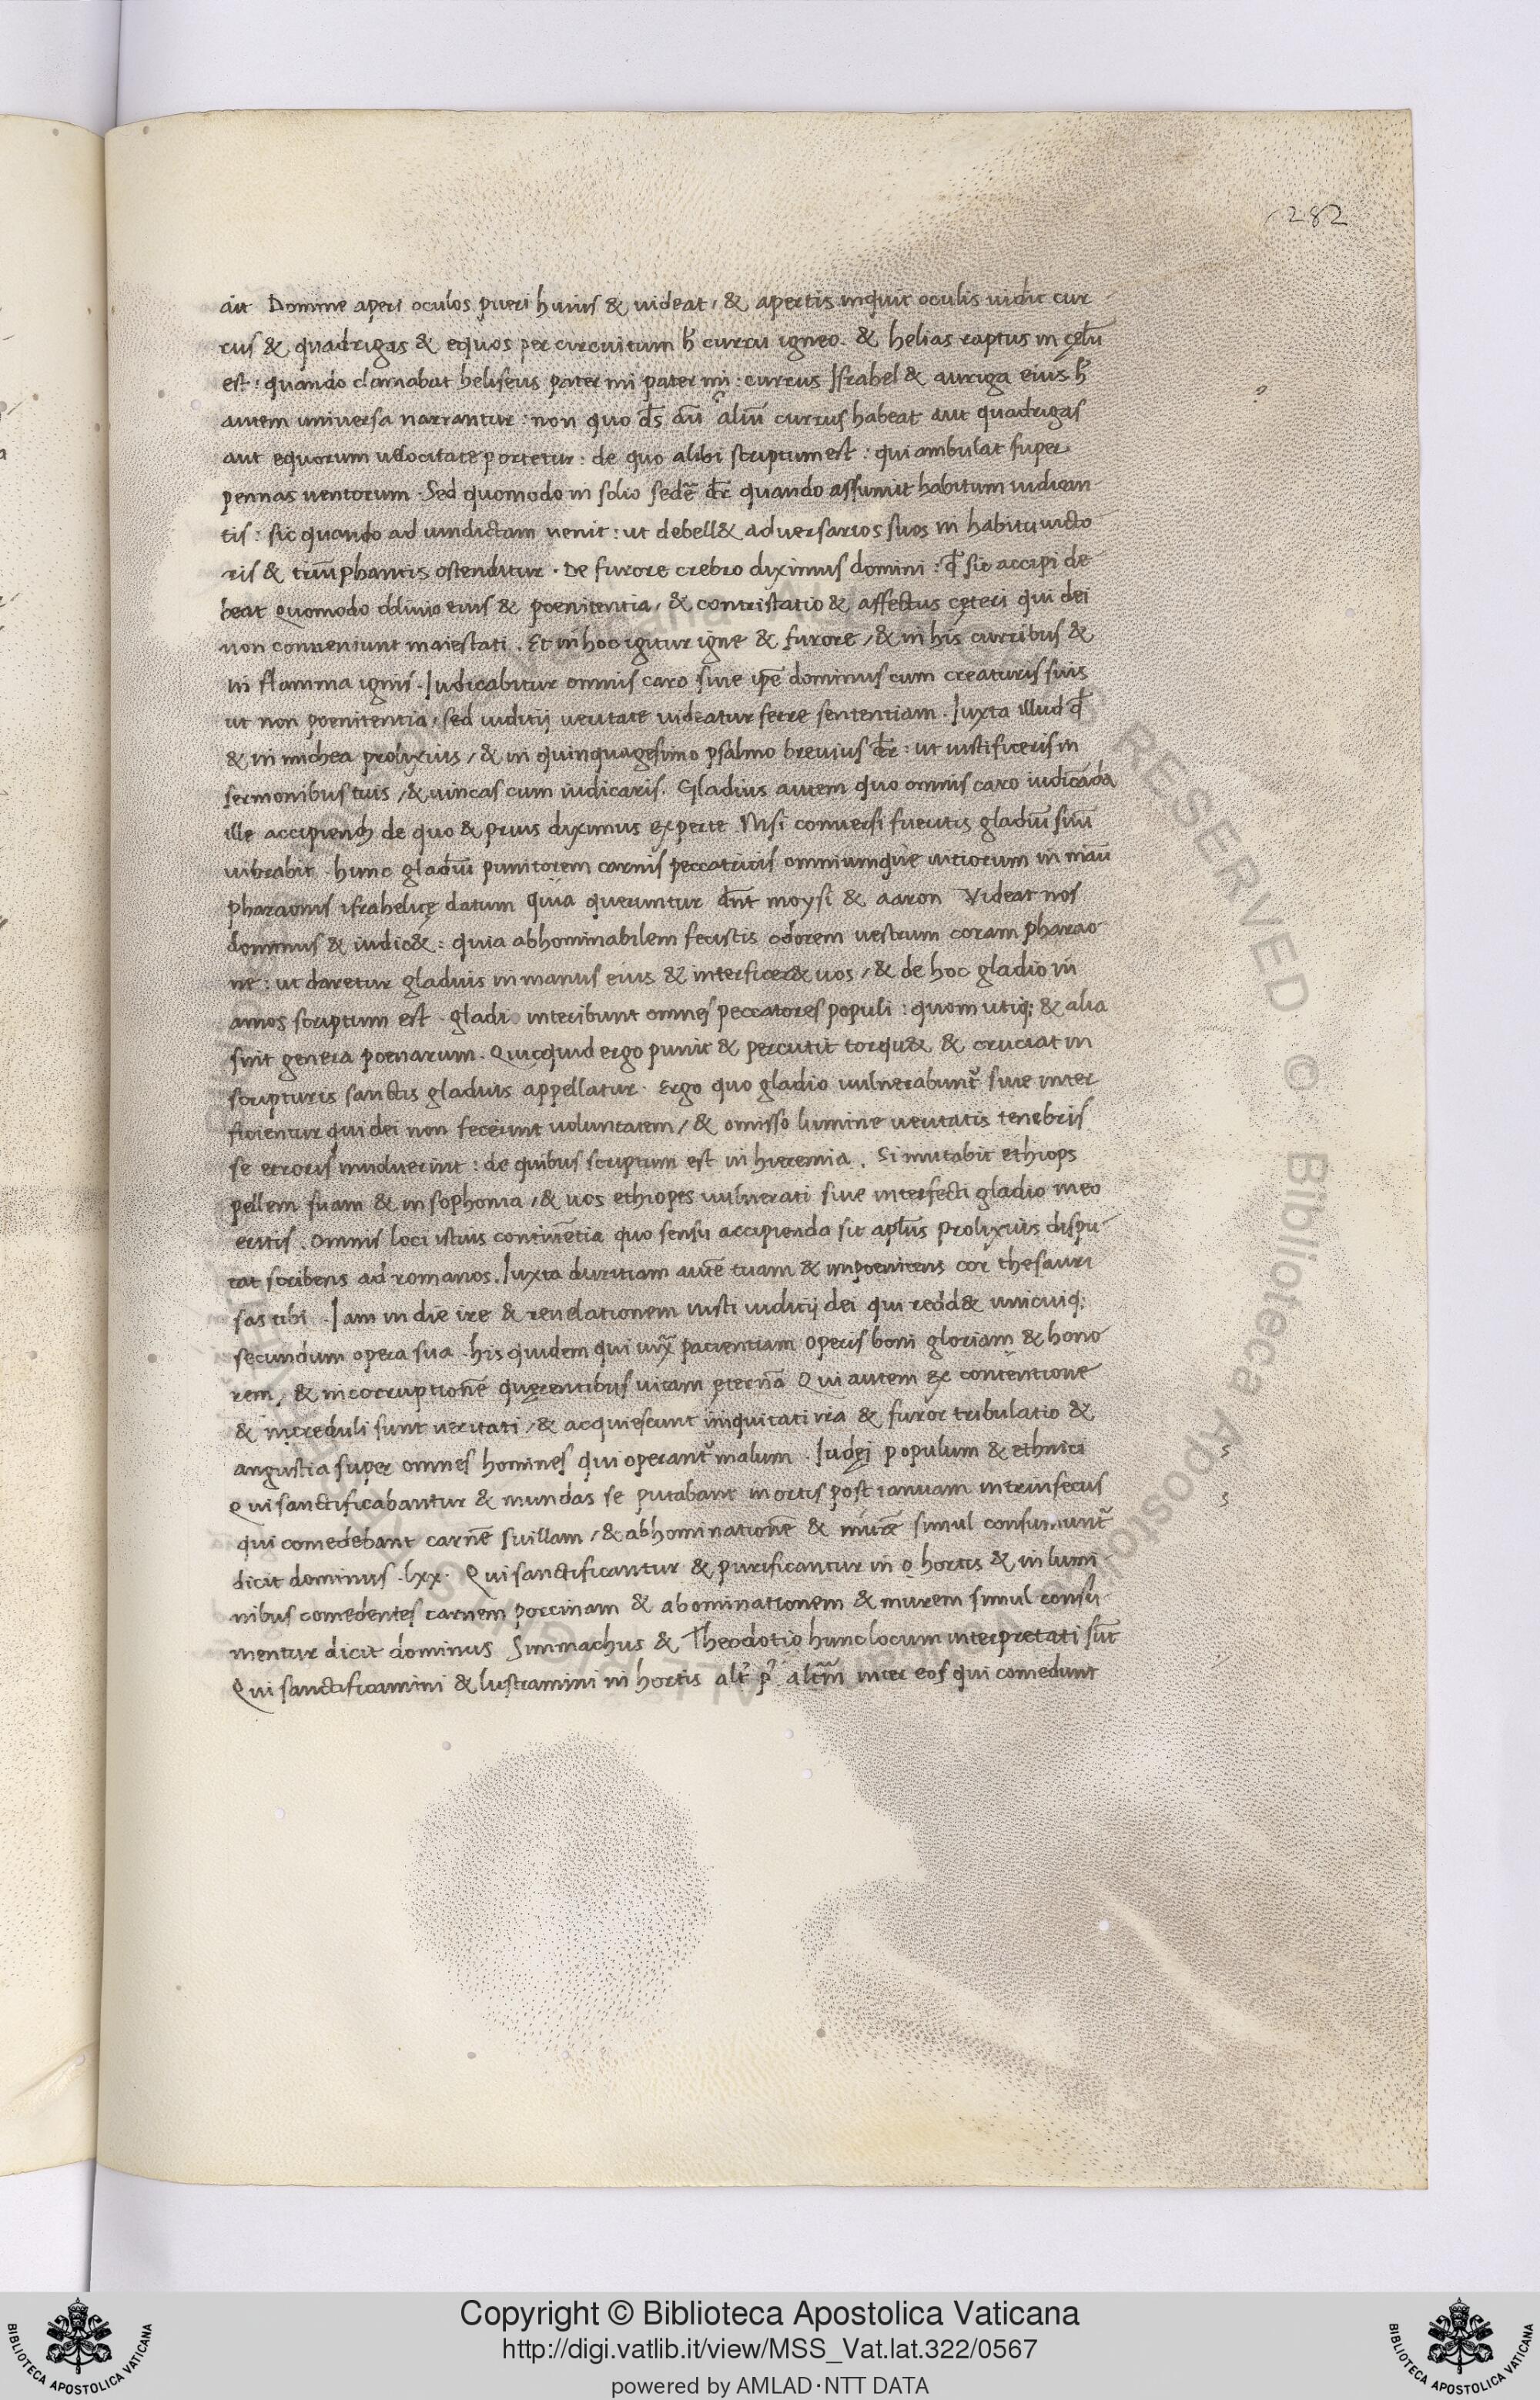 282
ait Domine aperi oculos pueri huius & uideat, & apertis inquit oculis uidit cur
rus & quadrigas & equos per circuitum h̓ curru igneo. & helias raptus in cęlũ
est: quando clamabat heliseus pater mi pater mi: currus Israhel & auriga eius h̓
autem uniuersa narrantur: non quo d̄s aũ aliũ currus habeat aut quadrigas
aut equorum uelocitate portetur: de quo alibi scriptum est: qui ambulat super
pennas uentorum. Sed quomodo in solio sedẽ d̄r quando assumit habitum iudican
tis: sic quando ad uindictam uenit: ut debell& aduersarios suos in habitu uicto
ris & triũphantis ostenditur. De furore crebro diximus domini: qđ sic accipi de
beat Quomodo obliuio eius & poenitentia, & contristatio & affectus cęteri qui dei
non conueniunt maiestati. Et in hoc igitur igne & furore, & in his curribus &
in flamma ignis. Iudicabitur omnis caro siue ip̄e dominus cum creaturis suis
ut non poenitentia, sed iuditij ueritate uideatur ferre sententiam. Iuxta illud qđ
& in michea prolixius, & in quinquagesimo psalmo breuius d̄r: ut iustificeris in
sermonibus tuis, & uincas cum iudicaris. Gladius autem quo omnis caro iudicãda
ille accipiend de quo & prius diximus ex parte. Nisi conuersi fueritis gladiũ suũ
uibrabit. hunc gladiũ punitorem carnis peccatricis omniumque uitiorum in manũ
pharaonis israhelitę datum quia queruntur d̄nt moysi & aaron Videat nos
dominus & iudic&: quia abhominabilem fecistis odorem uestrum coram pharao
ne: ut daretur gladius in manus eius & interficer& uos, & de hoc gladio in
amos scriptum est. gladio interibunt omnes peccatores populi: quom utiq; & alia
sint genera poenarum. Quicquid ergo punit & percutit torqu& & cruciat in
scripturis sanctis gladius appellatur. Ergo quo gladio uulnerabunt᷑ siue inter
ficientur qui dei non fecerint uoluntatem, & omisso lumine ueritatis tenebris
se erroris inuoluerint: de quibus scriptum est in hieremia. Si mutabit ethiops
pellem suam & in sophonia, & uos ethiopes uulnerati siue interfecti gladio meo
eritis. Omnis loci istius continẽtia quo sensu accipienda sit apl̃us prolixius dispu
tat scribens ad romanos. Iuxta duritiam autẽ tuam & impoenitens cor thesauri
sas tibi. Iam in die ire & reuelationem iusti iuditij dei qui redd& unicuiq;
secundum opera sua. his quidem qui iux̃ pacientiam operis boni gloriam & hono
rem, & incorruptionẽ quęrentibus uitam ęternã Qui autem ex contentione
& increduli sunt ueritati, & acquiescunt iniquitati ira & furor tribulatio &
angustia super omnes homines qui operant᷑ malum. Iudęi populum & ethnici
Qui sanctificabantur & mundas se putabant in ortis post ianuam intrinsecus
qui comedebant carnẽ suillam, & abhominationẽ & murẽ simul consumunt᷑
dicit dominus. lxx. Qui sanctificantur & purificantur in o hortis & in lumi
nibus comedentes carnem porcinam & abominationem & murem simul consu
mentur dicit dominus Simmachus & Theodotio hunc locum interpretati sũt
Qui sanctificamini & lustramini in hortis alt᷑ p᷑ alt̃m inter eos qui comedunt
s
s
Copyright © Biblioteca Apostolica Vaticana
http://digi.vatlib.it/view/MSS_Vat.lat.322/0567
powered by AMLAD·NTT DATA
BIBLIOTECA APOSTOLICA VATICANA
BIBLIOTECA APOSTOLICA VATICANA